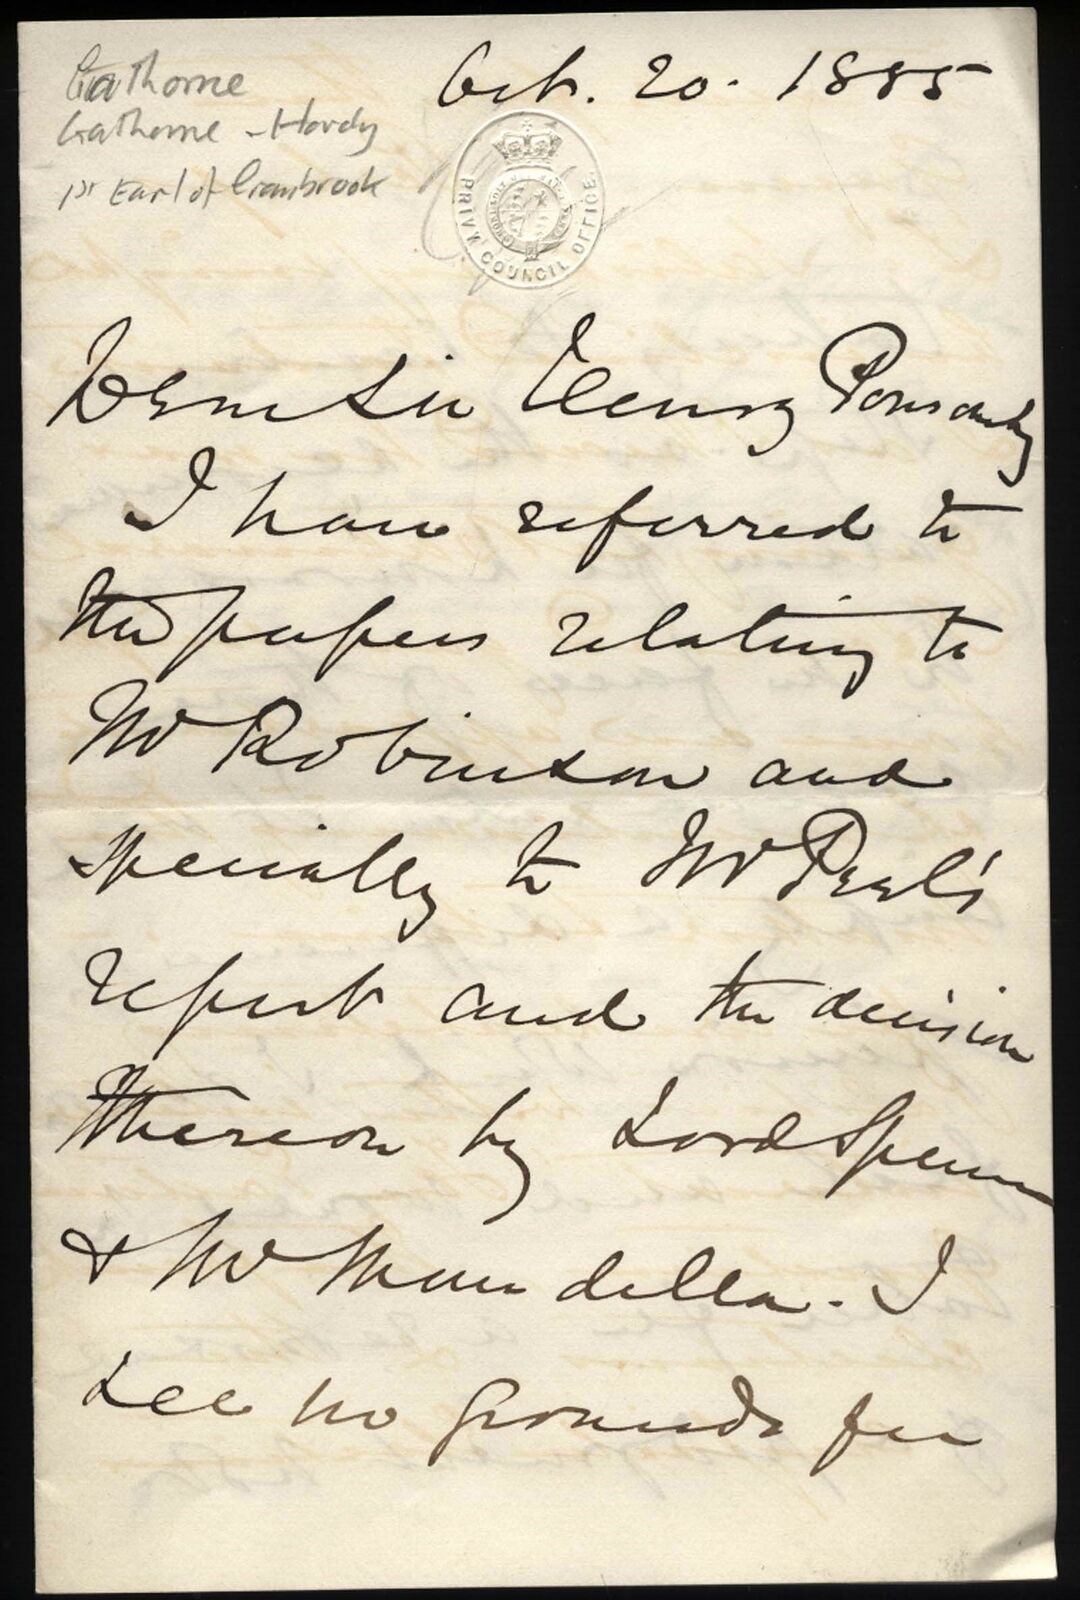 Gathorne
Gathorne-Hardy
1st Earl of Cranbrook
Oct. 20. 1885
PRIVY COUNCIL OFFICE.
Dear Sir Henry Ponsonby
I have referred to
the papers relating to
Mr Robinson and
specially to Mr Peel's
report and the decision
thereon by Lord Spencer
& Mr Mundella. I
see no grounds for